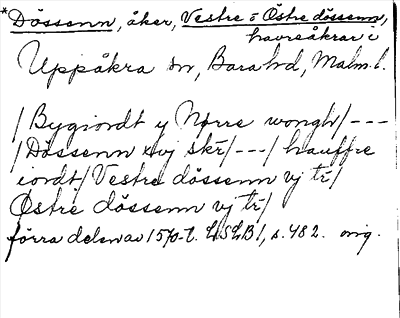 *Dössenn, åker, Vestre o Östre dössenn,
havreåkrar i
Uppåkra sn, Bara hd, Malm.l.
/Bygiordt y Nørre wongh/---
/Dössenn xvj skr/---/hauffre
iordt/Vestre dössenn vj tr/
Østre dössenn vj tr/
förra delen av 1570-t. LSLB1, s. 482. orig.